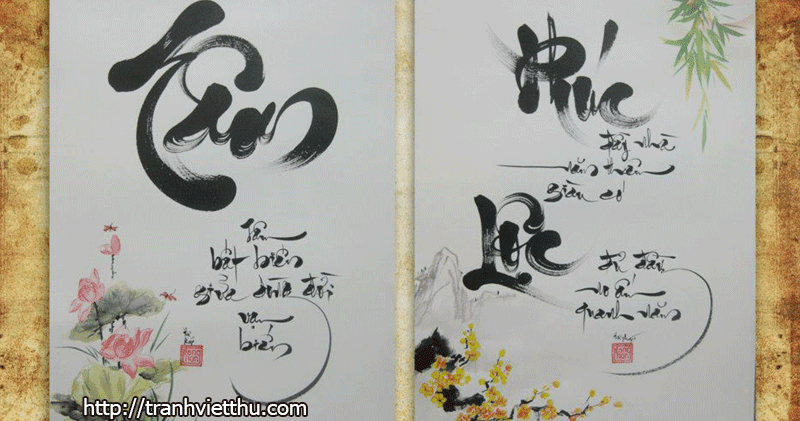 Tâm
Tâm
bất biến
giữa dòng đời
vạn
biến
Phúc
đầy nhà
năm thêm
giàu có
Lộc
đầy
no ấm
quanh năm
http://tranhvietthu.com